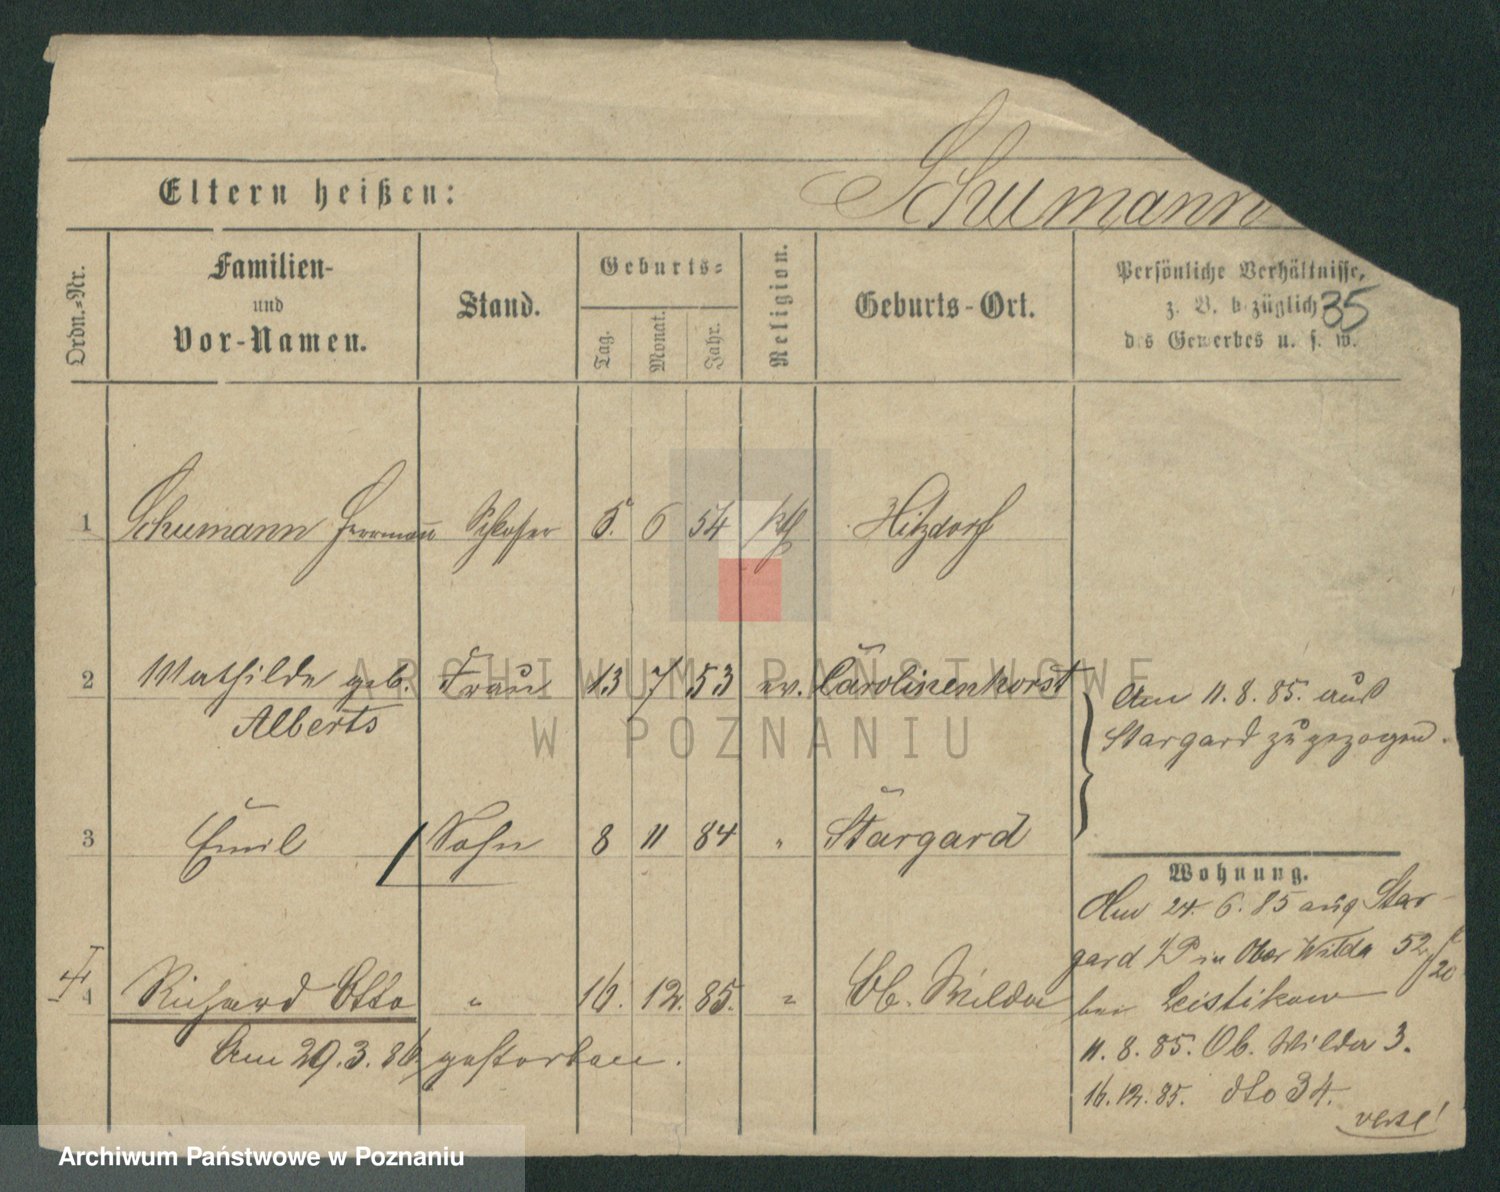 Schumann
Eltern heißen:
Ordn.-Nr.
Familien-
und
Vor-Namen.
Stand.
Geburts-
Tag.
Monat.
Jahr.
Religion.
Geburts-Ort.
Persönliche Verhältnisse,
z. B. bezüglich
des Gewerbes u. s. w.
35
1 Schumann Herrmann Schlosser 5. 6 54 Hitzdorf
2 Mathilde geb. Frau 13 7 53 ev. Carolinenhorst
Alberts
Am 11.8.85. aus
Stargard zugezogen.
3 Emil Sohn 8 11 84 " Stargard
Wohnung.
Am 24.6.85 aus Star-
gard i/P in Ober Wilda 52
20
bei Leistikow
4 Richard Otto " 16. 12. 85. " Ob. Wilda
Am 29.3.86 gestorben.
11.8.85. Ob. Wilda 3.
16.12.85. dto 34.
ARCHIWUM PAŃSTWOWE
W POZNANIU
Archiwum Państwowe w Poznaniu